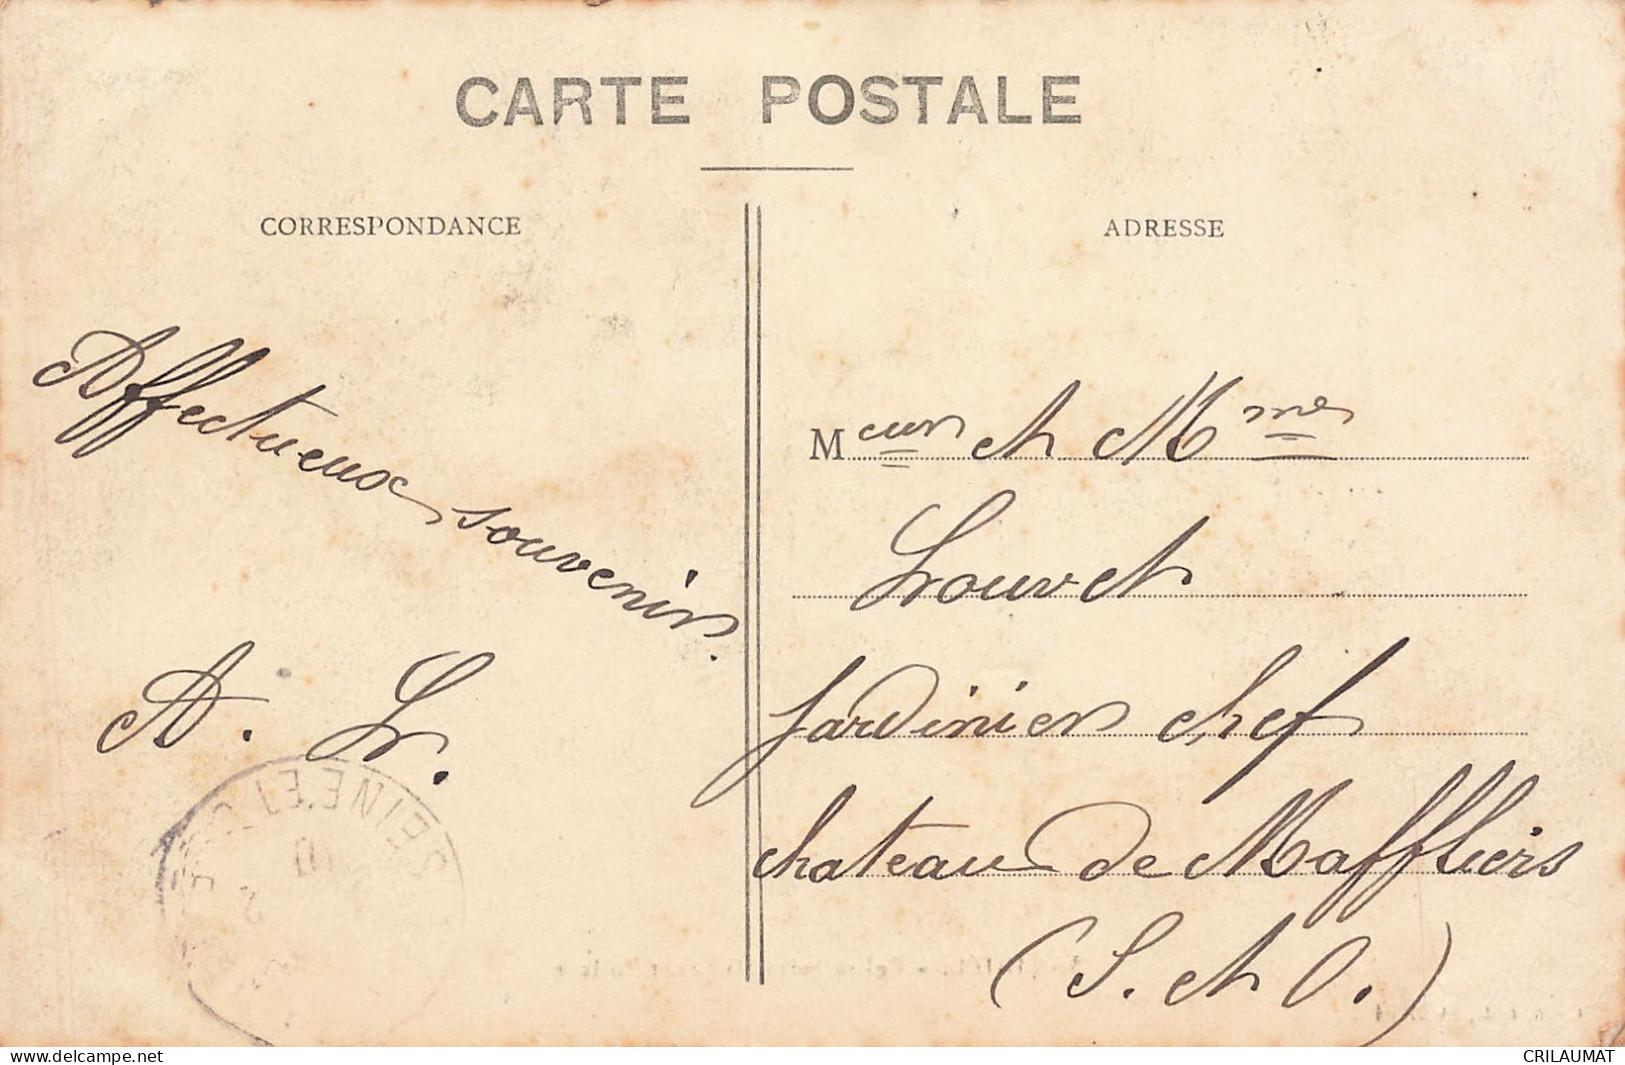 CARTE POSTALE
CORRESPONDANCE
Affectueux souvenir.
A. L.
ADRESSE
Meur et Mme
Louvet
Jardinier chef
chateau de Maffliers
(S. et O.)
SEINE
www.delcampe.net
CRILAUMAT